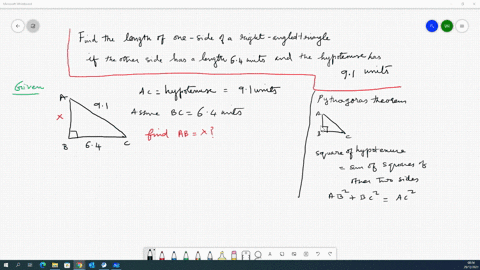 Find the length of one-side of a right-angled triangle
if the other side has a length 6.4 units and the hypotenuse has
9.1 units
Given
A
9.1
x
B
6.4
C
AC = hypotenuse = 9.1 units
Assume BC = 6.4 units
find AB = x?
Pythagoras theorem
A
B
C
square of hypotenuse
= sum of squares of
other two sides
AB² + BC² = AC²